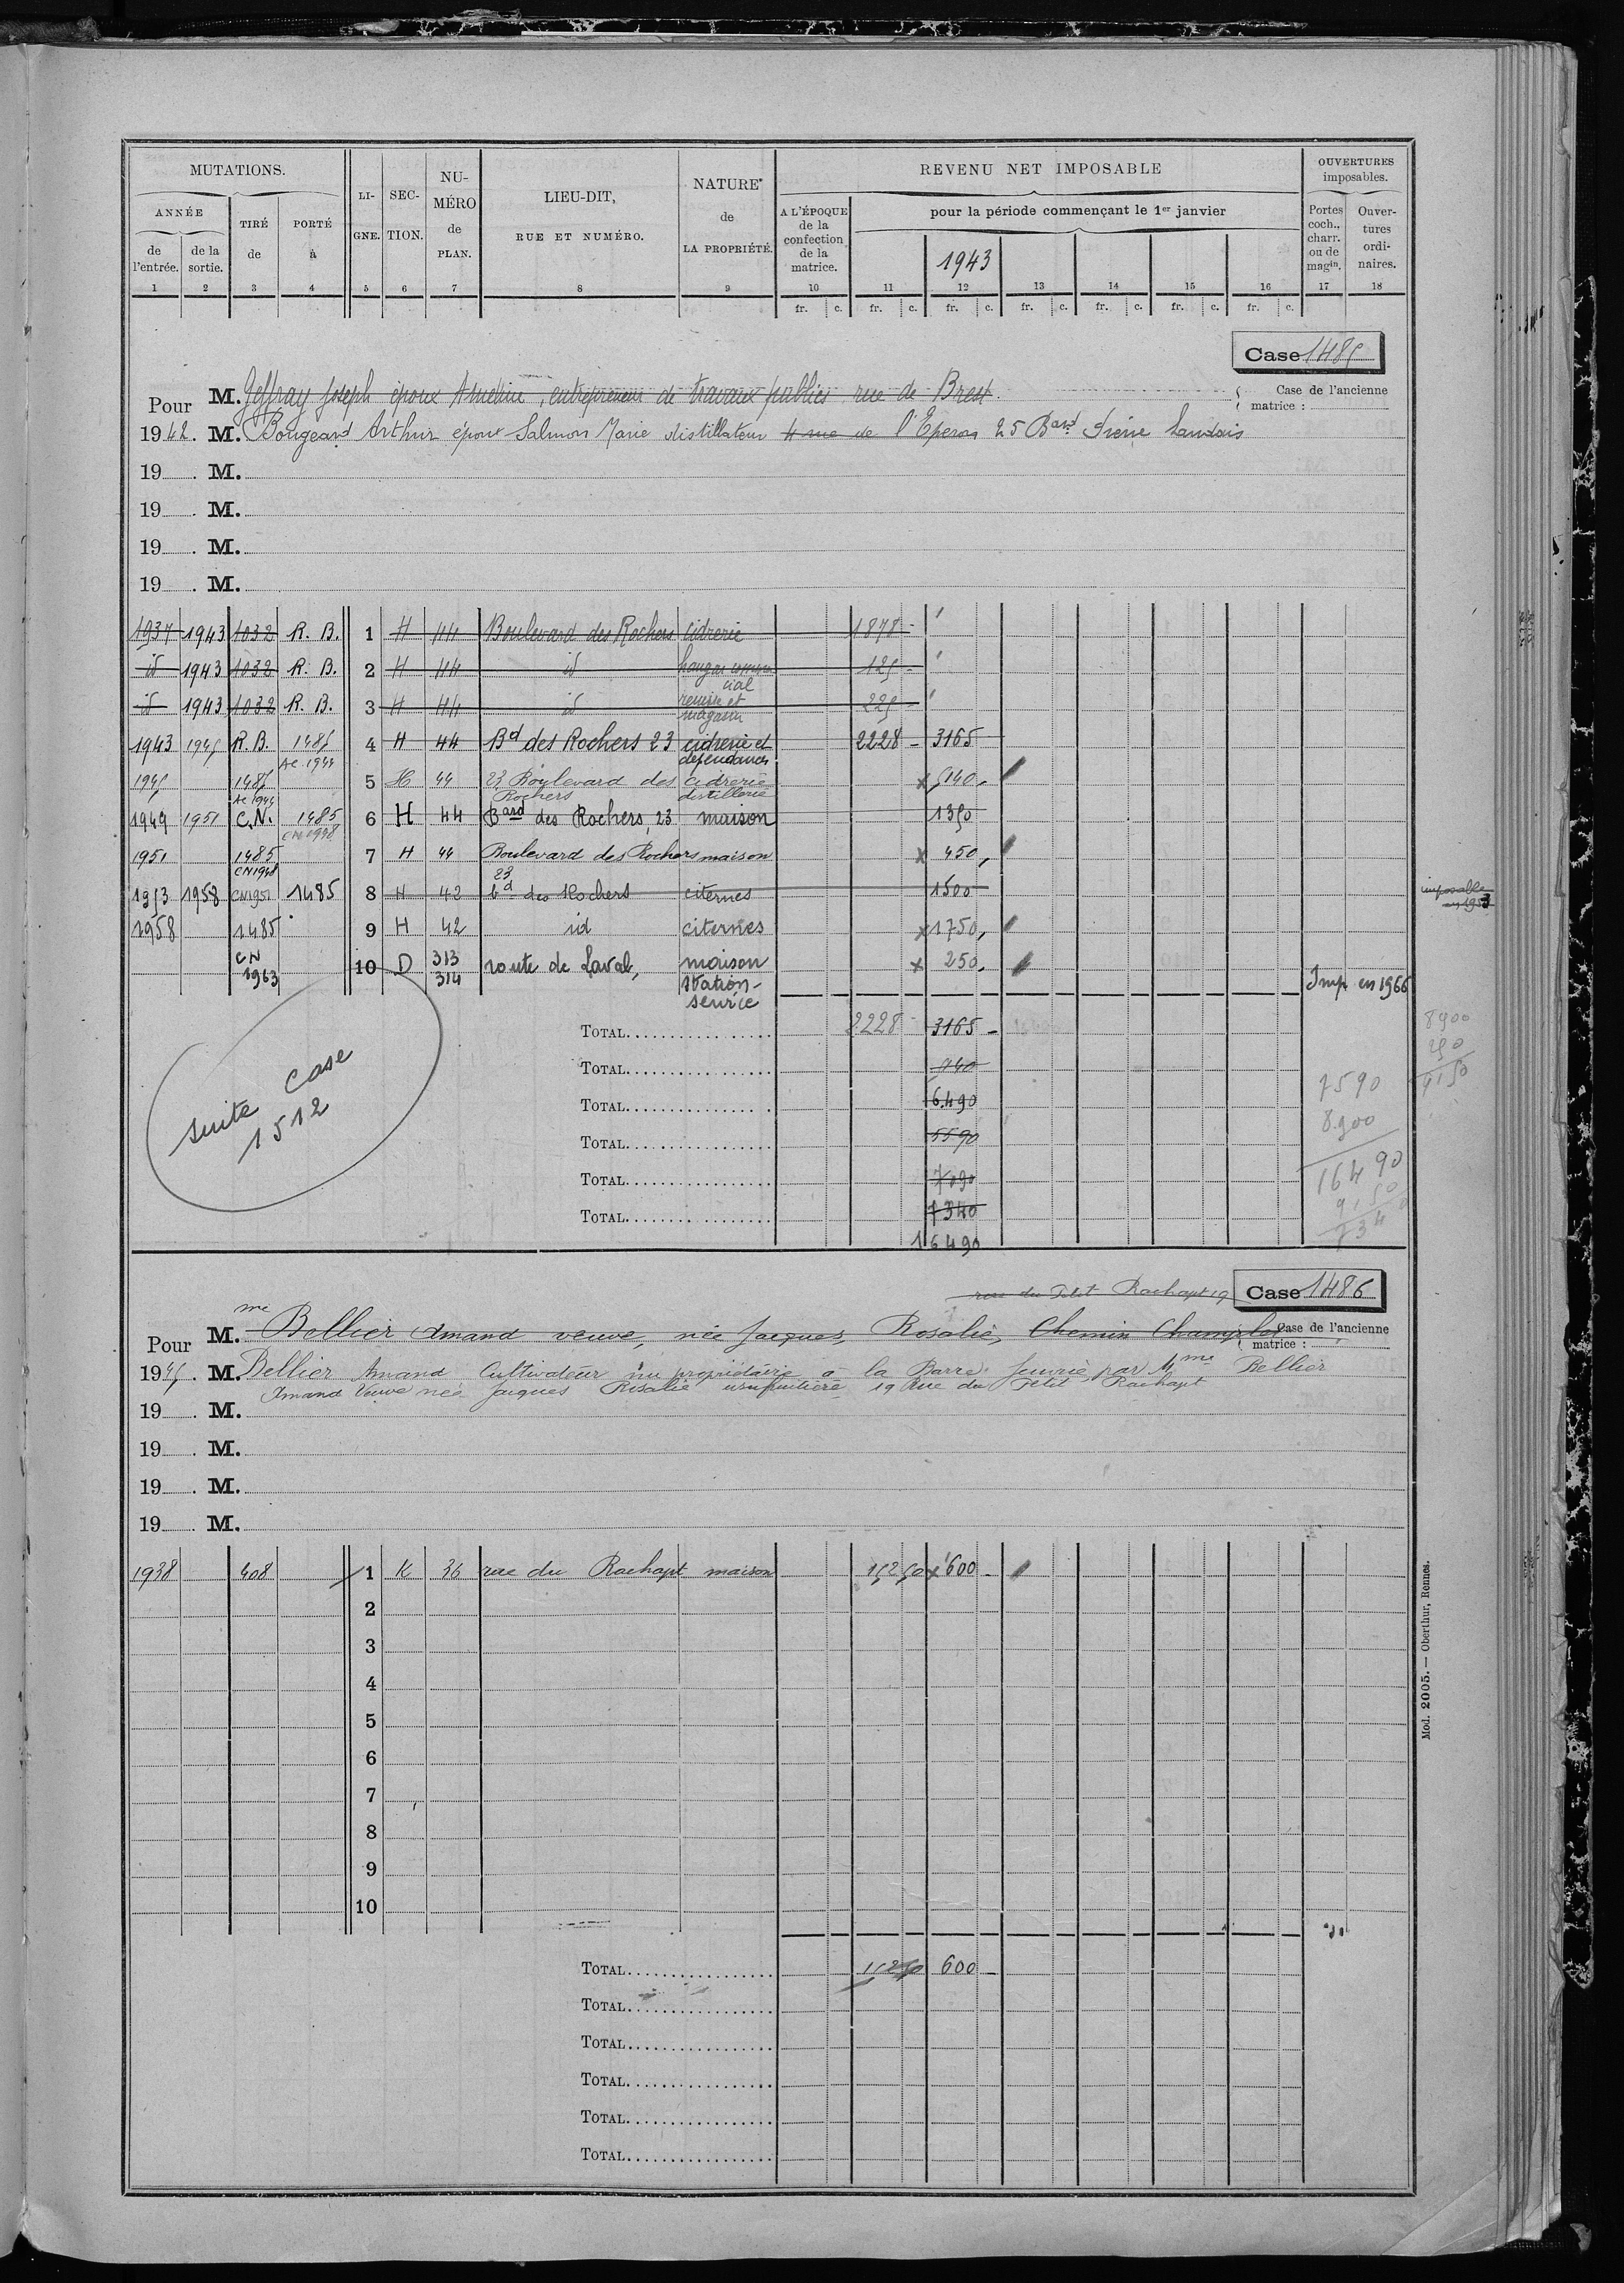 MUTATIONS. LI-GNE. SEC-TION. NU-MÉRO de PLAN. LIEU-DIT, RUE ET NUMÉRO. NATURE de LA PROPRIÉTÉ. REVENU NET IMPOSABLE OUVERTURES imposables.
ANNÉE TIRÉ de PORTÉ à A L'ÉPOQUE de la confection de la matrice. pour la période commençant le 1er janvier Portes coch., charr. ou de magin. Ouver-tures ordi-naires.
de l'entrée. de la sortie. 1943
1 2 3 4 5 6 7 8 9 10 11 12 13 14 15 16 17 18
fr. c. fr. c. fr. c. fr. c. fr. c. fr. c. fr. c.
Case 1485
Pour M. Geffray Joseph époux Ameline, entrepreneur de travaux publics rue de Brest.
Case de l'ancienne matrice :
1942. M. Bougeard Arthur époux Salmon Marie distillateur 4 rue de l'Eperon 25 Bard Frère Landais
19 . M.
19 . M.
19 . M.
19 . M.
1937 1943 1032 R. B. 1 H 44 Boulevard des Rochers cidrerie 1878 -
id 1943 1032 R. B. 2 H 44 id hangar commercial 125 -
id 1943 1032 R. B. 3 H 44 id remise et magasin 225 -
1943 1945 R. B. 1485 Ac 1944 4 H 44 Bd des Rochers 23 cidrerie et dépendances 2228 - 3165
1945 1485 Ac 1944 5 H 44 23 Boulevard des Rochers cidrerie distillerie x 5140 -
1949 1951 C.N. 1485 CN 1948 6 H 44 Bard des Rochers, 23 maison 1350
1951 1485 CN 1948 7 H 44 Boulevard des Rochers 23 maison x 450,
1953 1958 CN 1951 1485 8 H 42 bd des Rochers citernes 1500
imposable en 1953
1958 1485 9 H 42 id citernes x 1750,
CN 1963 10 D 313 314 route de Laval, maison station-service x 250.
Imp en 1966
TOTAL 2228 - 3165 -
TOTAL
TOTAL 6.490
TOTAL 5590
TOTAL 7090
TOTAL 7340
16490
suite case
1512
8900
250
9150
7590
8.900
16490
9150
734
rue du Petit Rachapt 19 Case 1486
Pour Mme Bellier Amand veuve, née Jacques Rosalie,
Case de l'ancienne matrice :
1945. M. Bellier Amand Cultivateur nu propriétaire à la Barre par Mme Bellier
Amand Veuve née Jacques Rosalie usufruitière 19 Rue du Petit Rachapt
19 . M.
19 . M.
19 . M.
19 . M.
1938 408 1 K 36 rue du Rachapt maison 152 50 x 600 -
2
3
4
5
6
7
8
9
10
TOTAL 152 50 600 -
TOTAL
TOTAL
TOTAL
TOTAL
TOTAL
Mod. 2005. — Oberthur, Rennes.